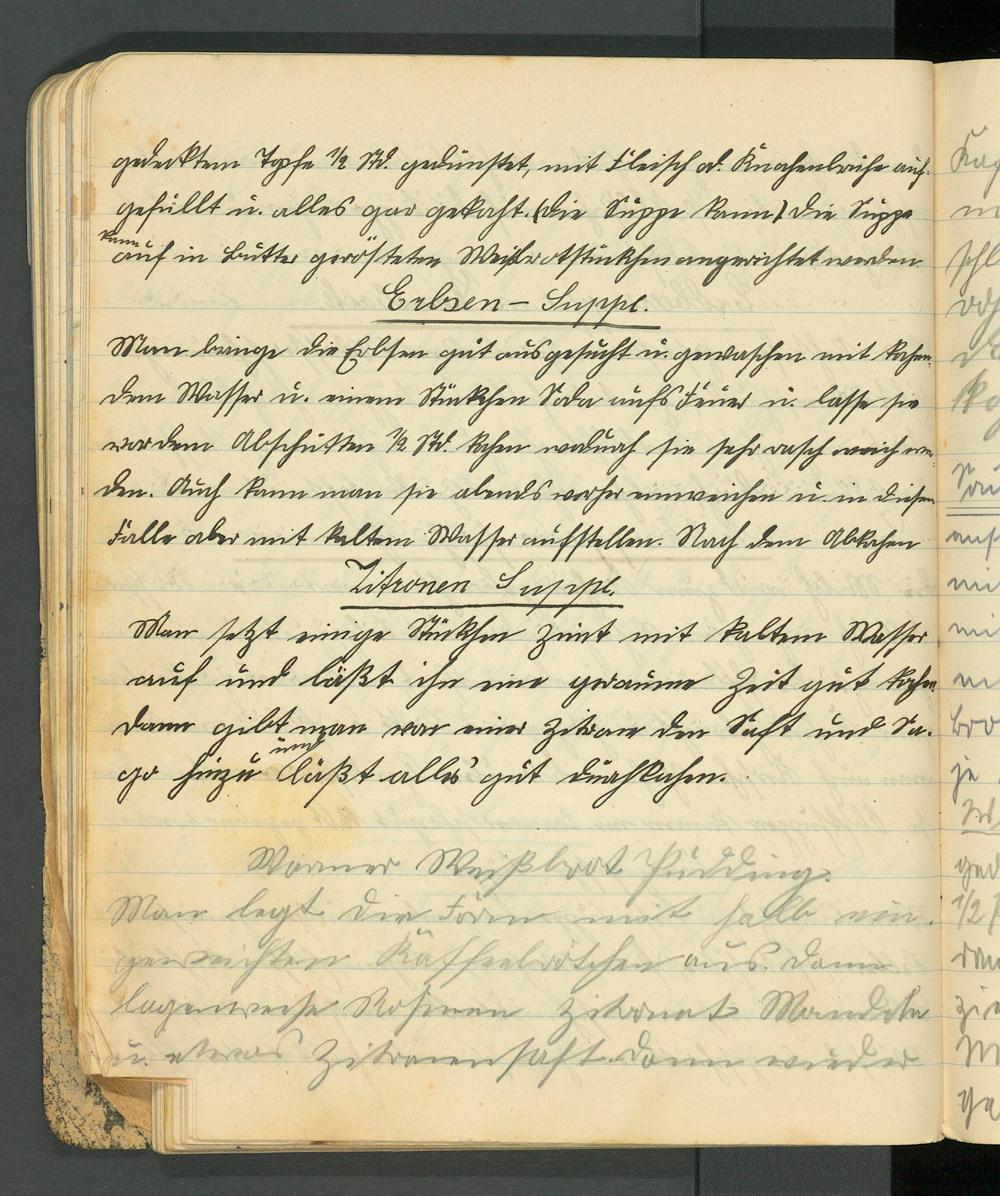 gedecktem Topfe 1/2 Std. gedünstet, mit Fleisch od. Knochenbrühe auf-
gefüllt u. alles gar gekocht. (Die Suppe kann) Die Suppe
kann auf in Butter gerösteten Weißbrotstückchen angerichtet werden.
Erbsen - Suppe.
Man bringe die Erbsen gut ausgesucht u. gewaschen mit kochen-
dem Wasser u. einem Stückchen Soda aufs Feuer u. lasse sie
vor dem Abschütten 1/2 Std. kochen wodurch sie sehr rasch weich wer-
den. Auch kann man sie abends vorher einweichen u. in diesem
Falle aber mit kaltem Wasser aufstellen. Nach dem Abkochen
Zitronen Suppe.
Man setzt einige Stückchen Zimt mit kaltem Wasser
auf und läßt ihn eine geraume Zeit gut kochen
dann gibt man von einer Zitrone den Saft und Sa-
go hinzu und läßt alles gut durchkochen.
Warmer Weißbrot Pudding.
Man legt die Form mit halb ein-
geweichten Kaffeebrötchen aus. Dann
lagenweise Rosinen Zitronat Mandeln
u. etwas Zitronensaft. Dann wieder